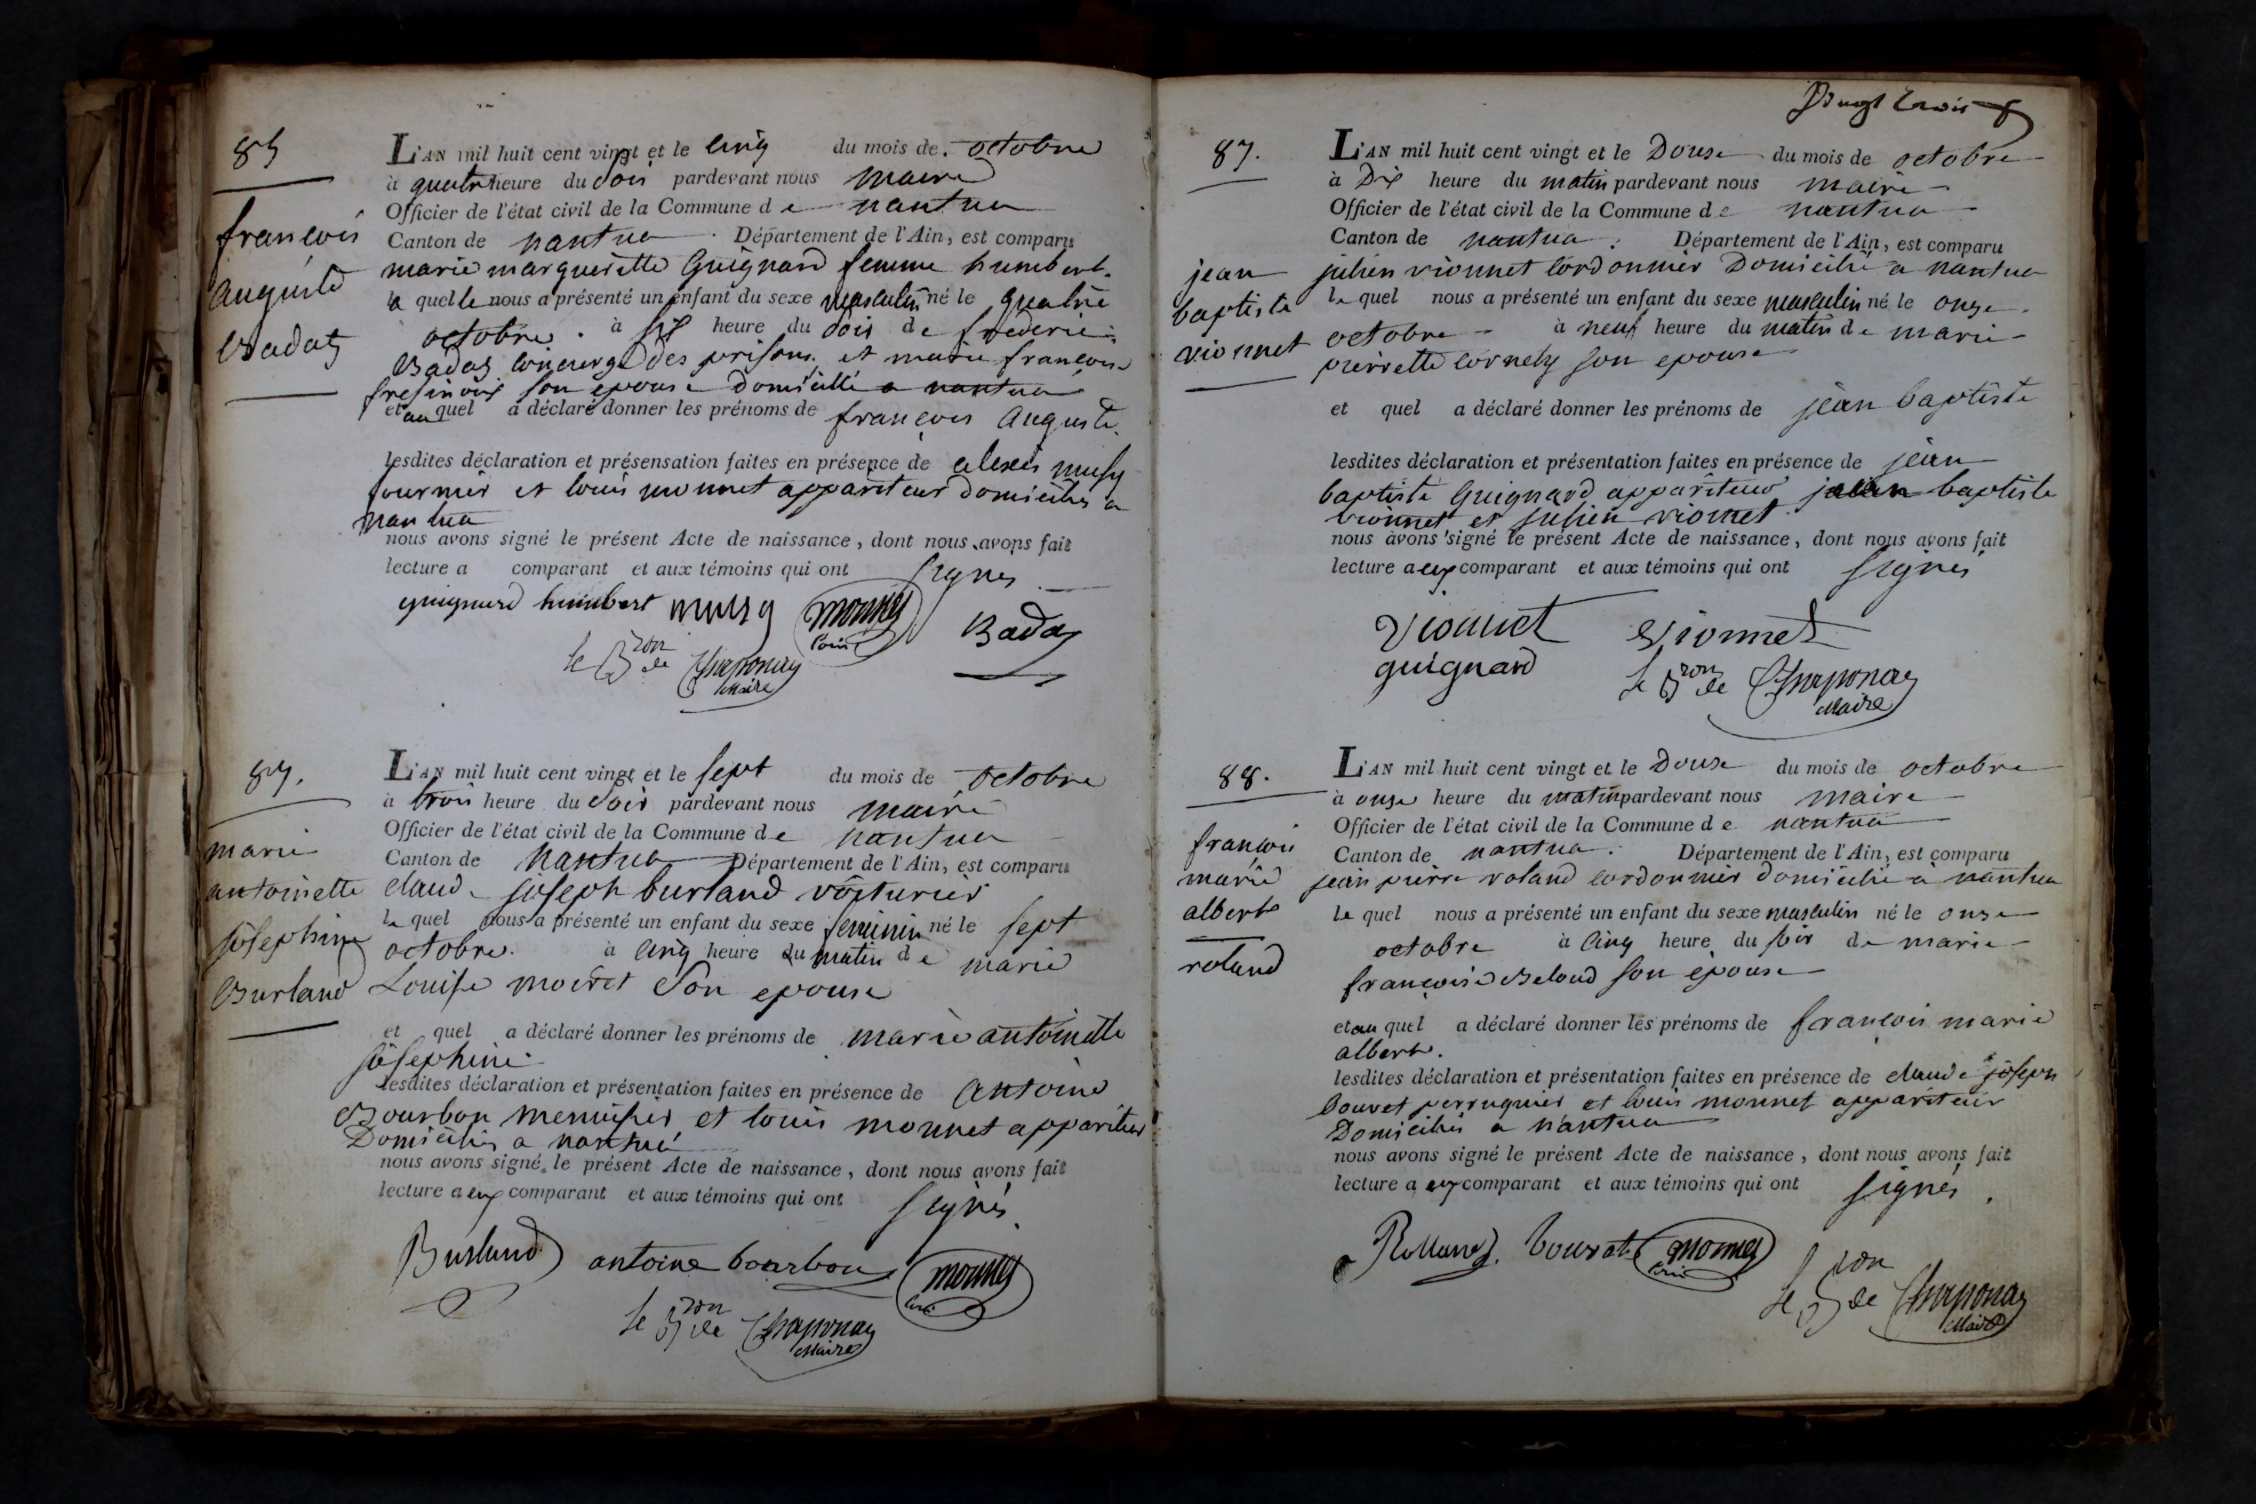 85
françois
auguste
Badaz
L'AN mil huit cent vingt et le cinq du mois de octobre
à quatre heure du soir pardevant nous maire
Officier de l'état civil de la Commune de nantua
Canton de nantua . Département de l'Ain, est comparu
marie marguerette Guignard femme humbert.
la quelle nous a présenté un enfant du sexe masculin né le quatre
octobre . à six heure du soir de frederic
Badaz concierge des prisons et marie françoise
son épouse domicilié a nantua
et au quel a déclaré donner les prénoms de françois auguste.
lesdites déclaration et présensation faites en présence de alexis musy
fournier et louis monnet appariteur domiciliés a
nantua
nous avons signé le présent Acte de naissance, dont nous avons fait
lecture a comparant et aux témoins qui ont signés
guignard humbert musy monnet Louis Badaz
le Bron de Chaponay
Maire
87.
marie
antoinette
josephine
Burland
L'AN mil huit cent vingt et le sept du mois de octobre
à trois heure du soir pardevant nous maire
Officier de l'état civil de la Commune de nantua
Canton de nantua Département de l'Ain, est comparu
claude joseph burland voiturier
le quel nous a présenté un enfant du sexe feminin né le sept
octobre. à cinq heure du matin de marie
Louise moiret son epouse
et quel a déclaré donner les prénoms de marie antoinette
josephine.
lesdites déclaration et présentation faites en présence de antoine
Bourbon menuisier et louis monnet appariteur
Domiciliés a nantua
nous avons signé le présent Acte de naissance, dont nous avons fait
lecture a eux comparant et aux témoins qui ont signés.
Burland antoine bourbon monnet Louis
le Bron de Chaponay
Maire
Vingt trois
87.
jean
baptiste
vionnet
L'AN mil huit cent vingt et le Douse du mois de octobre
à Dix heure du matin pardevant nous maire
Officier de l'état civil de la Commune de nantua
Canton de nantua . Département de l'Ain, est comparu
julien vionnet cordonnier Domicilié a nantua
le quel nous a présenté un enfant du sexe masculin né le onze
octobre à neuf heure du matin de marie
pierrette cornely son epouse
et quel a déclaré donner les prénoms de jean baptiste
lesdites déclaration et présentation faites en présence de jean
baptiste Guignard appariteur jean baptiste
vionnet et julien vionnet
nous avons signé le présent Acte de naissance, dont nous avons fait
lecture a eux comparant et aux témoins qui ont signés
Vionnet Vionnet
guignard le Bron de Chaponay
Maire
88.
françois
marie
albert
roland
L'AN mil huit cent vingt et le Douse du mois de octobre
à onze heure du matin pardevant nous maire
Officier de l'état civil de la Commune de nantua
Canton de nantua . Département de l'Ain, est comparu
jean pierre roland cordonnier domicilié a nantua
le quel nous a présenté un enfant du sexe masculin né le onze
octobre à cinq heure du soir de marie
françoise Beloud son épouse
et au quel a déclaré donner les prénoms de françois marie
albert.
lesdites déclaration et présentation faites en présence de claude joseph
bouvet perruquier et louis monnet appariteur
Domiciliés a nantua
nous avons signé le présent Acte de naissance, dont nous avons fait
lecture a eux comparant et aux témoins qui ont signés.
Rolland. monnet Louis
le Bron de Chaponay
Maire